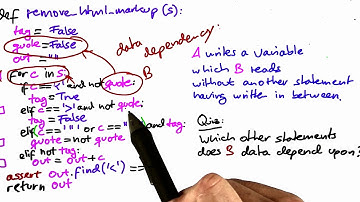 def remove_html_markup (s):
tag = False
quote = False
out = ""
for c in s:
if c == '<' and not quote:
tag = True
elif c == '>' and not quote:
tag = False
elif (c == '"' or c == "'") and tag:
quote = not quote
elif not tag:
out = out + c
assert out.find('<') ==
return out
data dependency:
B
A writes a variable
which B reads
without another statement
having written in between.
Quiz:
Which other statements
does B data depend upon?